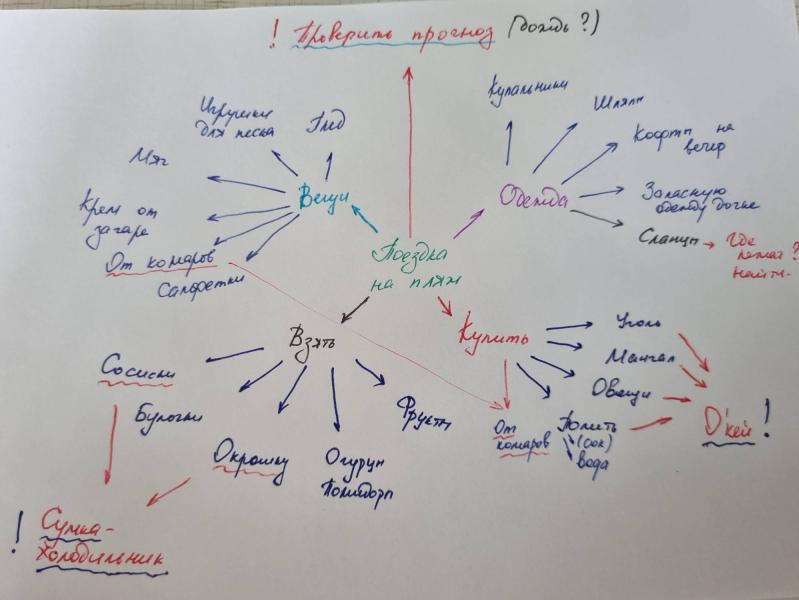 ! Проверить прогноз (дождь?)
Купальники
Шляпы
Игрушки
для песка
Плед
Кофты на
вечер
Мяч
Вещи
Одежда
Запасную
одежду дочке
Крем от
загара
Сланцы → Где
найти
?
От комаров
Салфетки
Поездка
на пляж
Взять
Купить
Уголь
Мангал
Овощи
О'кей!
Попить
(сок)
вода
От
комаров
Сосиски
Булочки
Фрукты
Окрошку
Огурцы
Помидоры
! Сумка-
холодильник